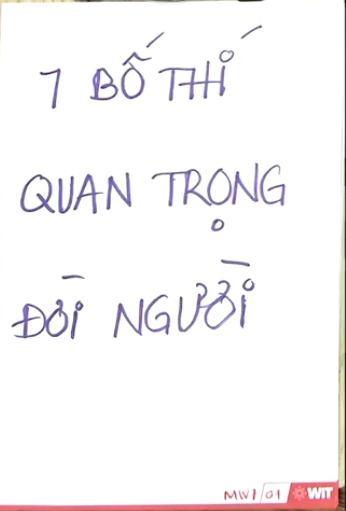 7 BỐ THÍ
QUAN TRỌNG
ĐỜI NGƯỜI
MW1/01 WIT